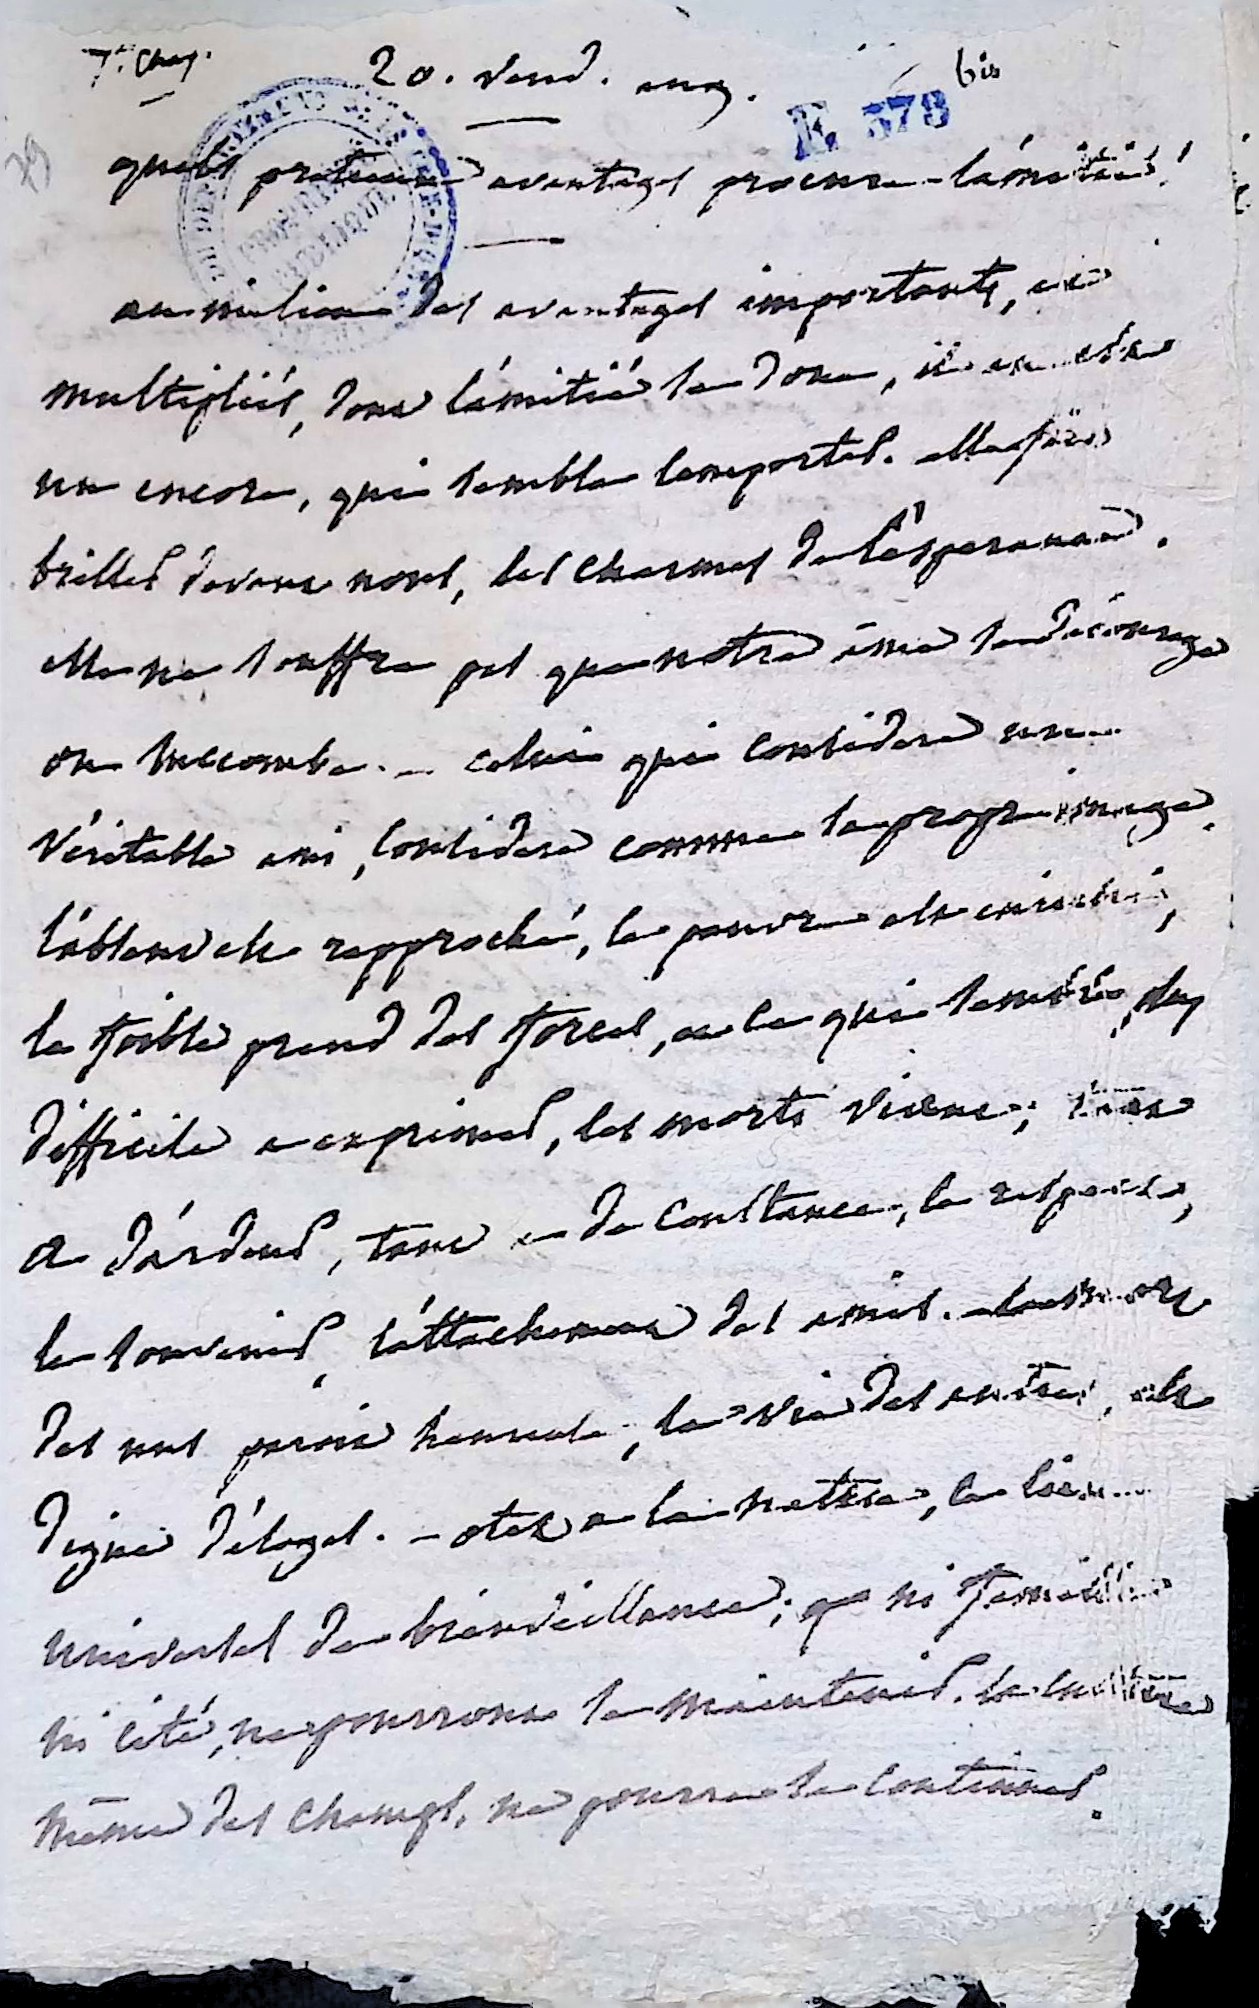 7e. Chap.
20. Vend. an 9.
bis
E 578
79
quels précieux avantages procure l'amitié!
PROPRIÉTÉ
PUBLIQUE
au milieu des avantages importants, et
multipliés, dont l'amitié se done, il en est
un encore, qui semble l'emporter. elle fait
briller devant nous, les charmes de l'ésperance.
elle ne souffre pas que notre âme se décourage
ou succombe. — celui qui considere un
véritable ami, considere comme sa propre image.
l'absent est rapproché, le pauvre est enrichi,
le foible prend des forces, et ce qui semble plus
difficile a exprimer, les morts vivent; tant
a d'ardeur, tant a de constance, le respect,
le souvenir, l'attachement des amis. la mort
des uns paroit heureuse, la vie des autres, est
digne d'éloges. — otez a la nature, le lien
universel de bienveillance; que ni famille
ni cité, ne pourront se maintenir. la culture
même des champs, ne pourra se continuer.